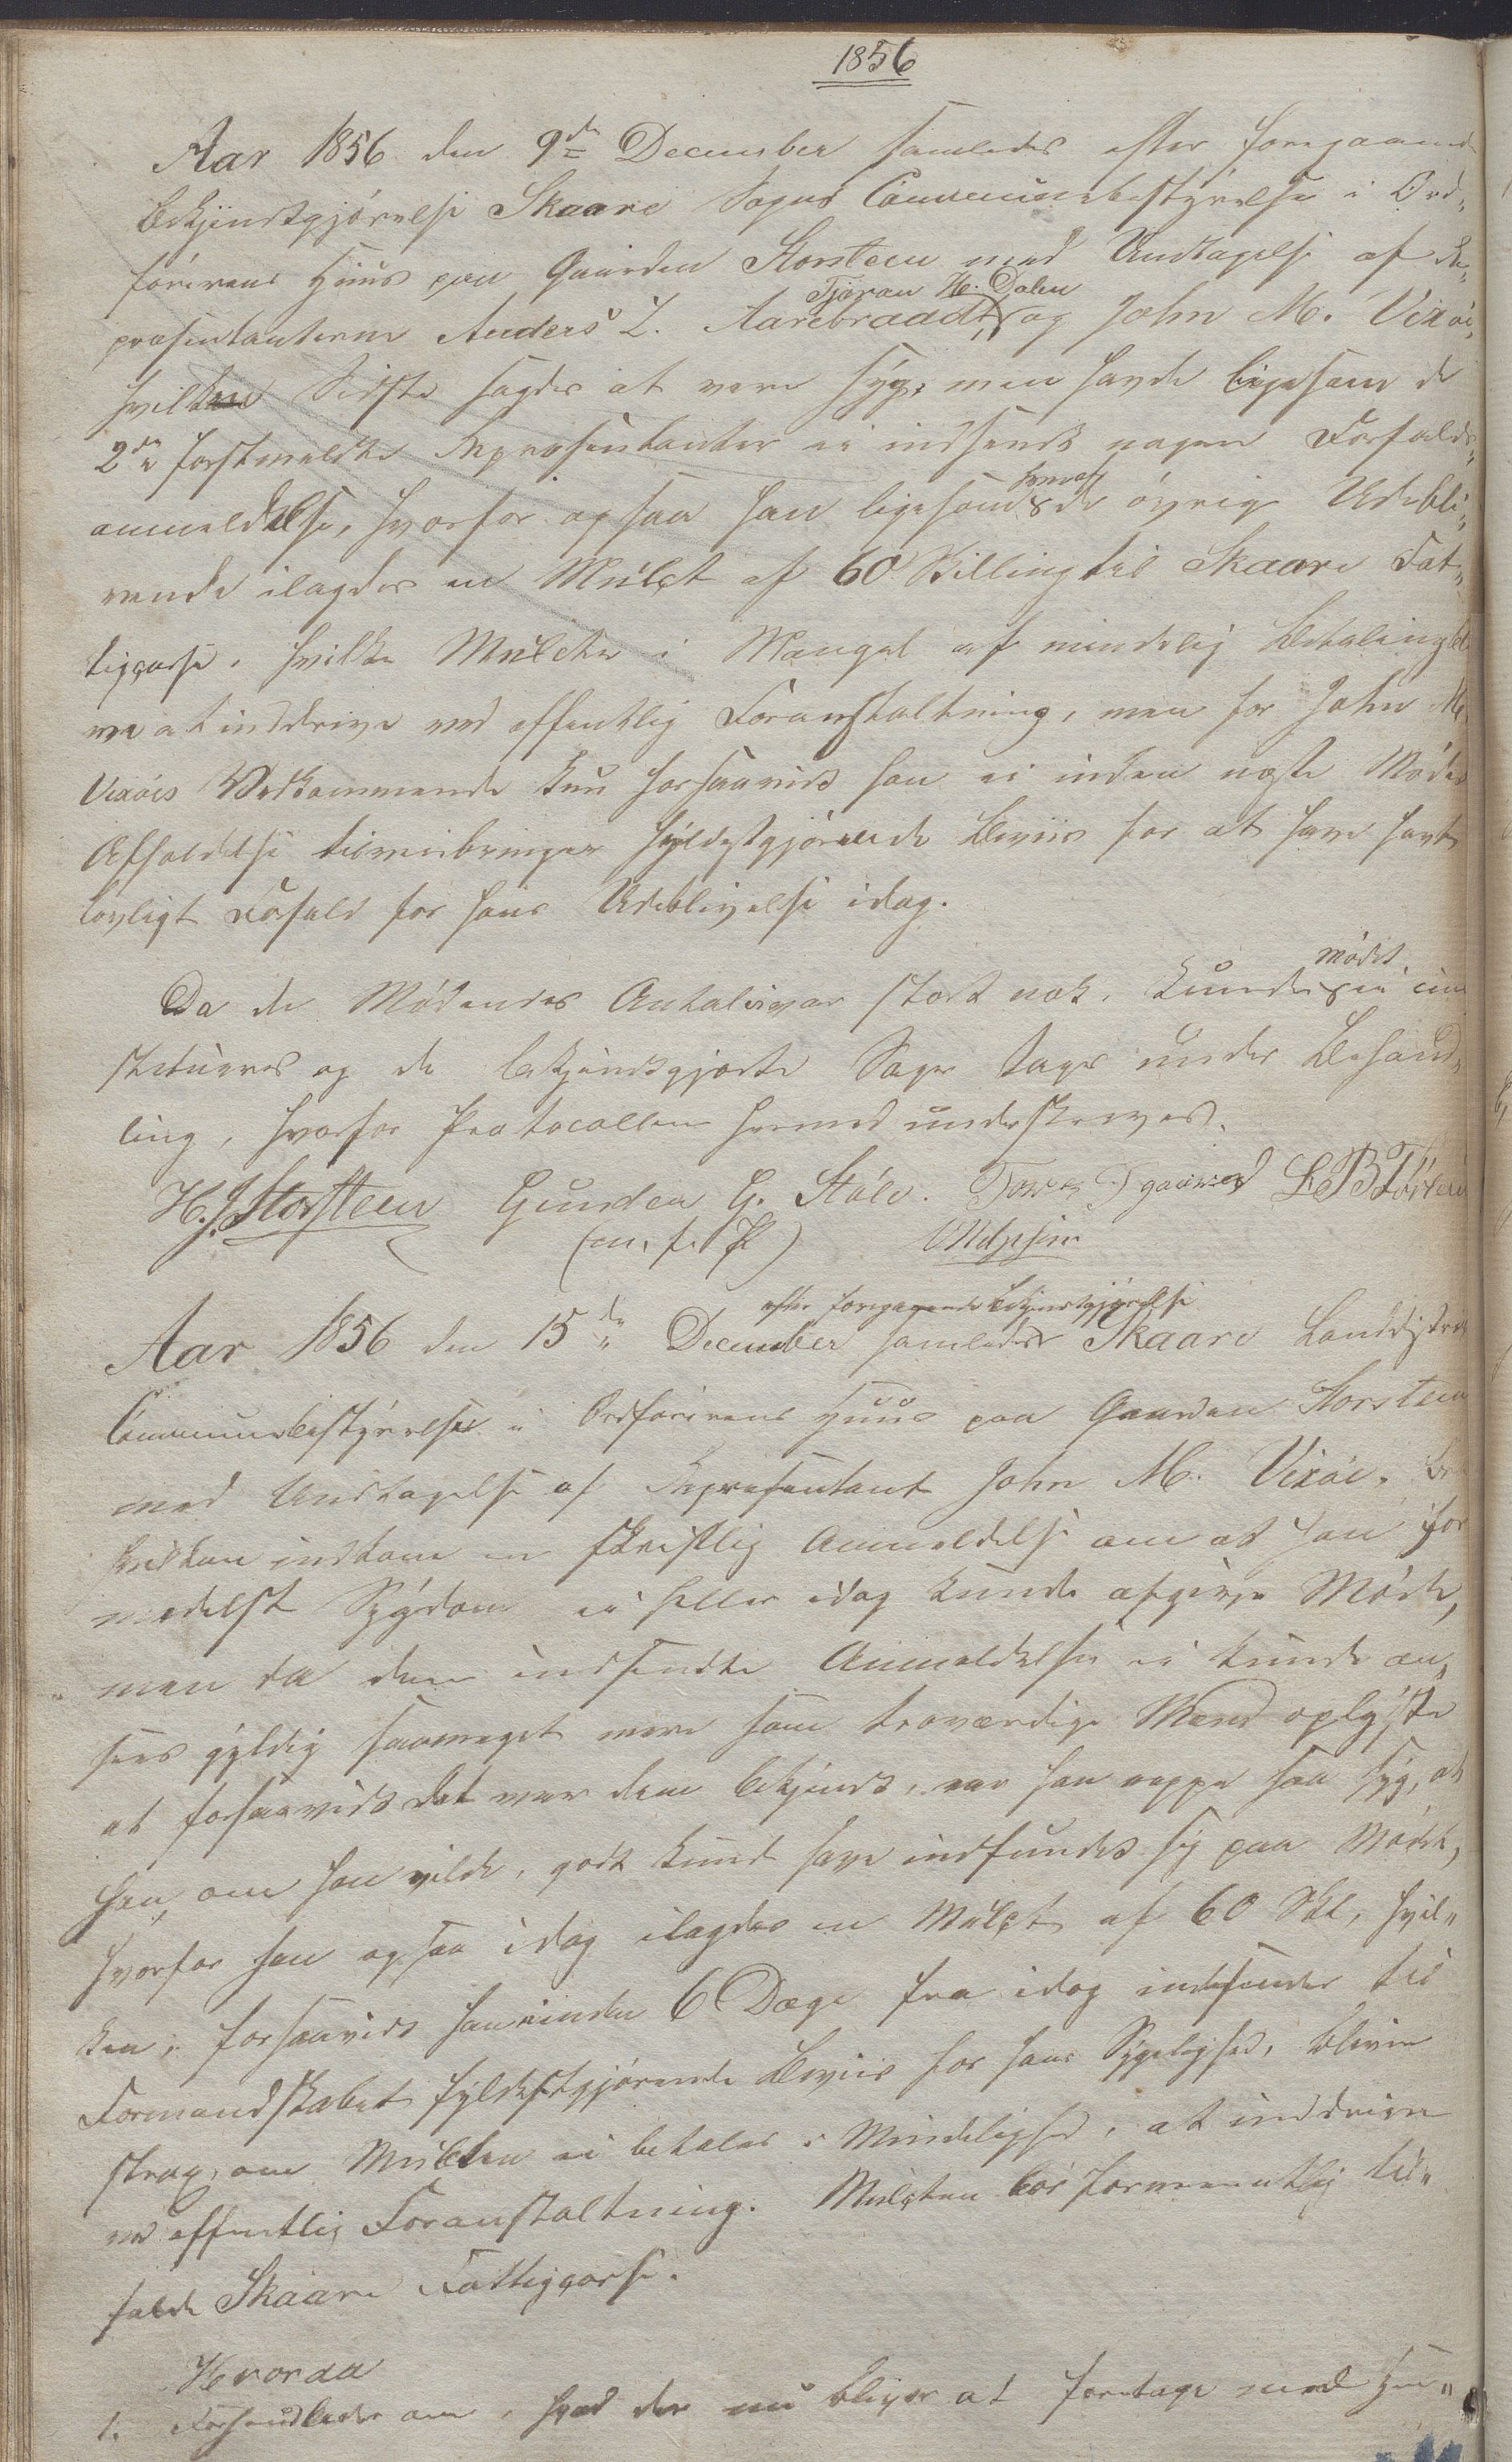 1856
Aar 1856 den 9de December samledes efter foregaaende
bekjendtgjørelse Skaare Sogns Communebestyrelse i Ord„
førerens Huus paa Gaarden Storsteen med Undtagelse af Re„
præsentanterne Anders L. Aarebraadt, Tjøran H. Dalen og John M. Vixøe,
hvilken Sidste sagdes at være syg, men havde ligesom de
2de førstmeldte Repræsentanter ei indsendt nogen Forfalds„
anmeldelse, hvorfor ogsaa han ligesom enhver af de øvrige Udebli„
vende ilagdes en Mulct af 60 Skilling til Skaare Fat„
tigcasse, hvilke Mulcter i Mangel af mindelig Betaling bli
ve at inddrive ved offentlig Foranstaltning, men for John M.
Vixøes Vedkommende kun forsaavidt han ei inden næste Mødes
Afholdelse tilveiebringer fyldestgjørende Beviis for at have havt
lovligt Forfald for hans Udeblivelse idag.
Da de Mødendes Antal ei var stort nok, kunde Mødet ei con
stitueres og de bekjendtgjorte Sager tages under Behand„
ling, hvorfor Protocollen hermed underskreves.
H. J. Storsteen Gunder G. Støle. L B
(m. f. P)
Aar 1856 den 15de December efter foregaaende Bekjendtgjørelse samledes Skaare Landdistricts
Communebestyrelse i Ordførerens Huus paa Gaarden Storsteen
med Undtagelse af Repræsentant John M. Vixøe. Fra
hvilken indkom en skriftlig Anmeldelse om at han for
medelst Sygdom ei heller idag kunde afgive Møde,
men da den indsendte Anmeldelse ei kunde an„
sees gyldig saameget mere som troværdige Mænd oplyste
at forsaavidt det var dem bekjendt, var han neppe saa syg, at
han, om han vilde, godt kunde have indfundet sig paa Mødet,
hvorfor han ogsaa idag ilagdes en Mulct af 60 Skl, hvil„
ken, forsaavidt han ei inden 6 Dage fra idag indsender til
Formandskabet fyldestgjørende Beviis for hans Sygelighed, bliver
strax, om Mulcten ei betales i Mindelighed, at inddrive
ved offentlig Foranstaltning. Mulcten bør formeentlig til„
falde Skaare Fattigcasse.
Hvorda
1. Forhandledes om, hvad der nu bliver at foretage med Hen„